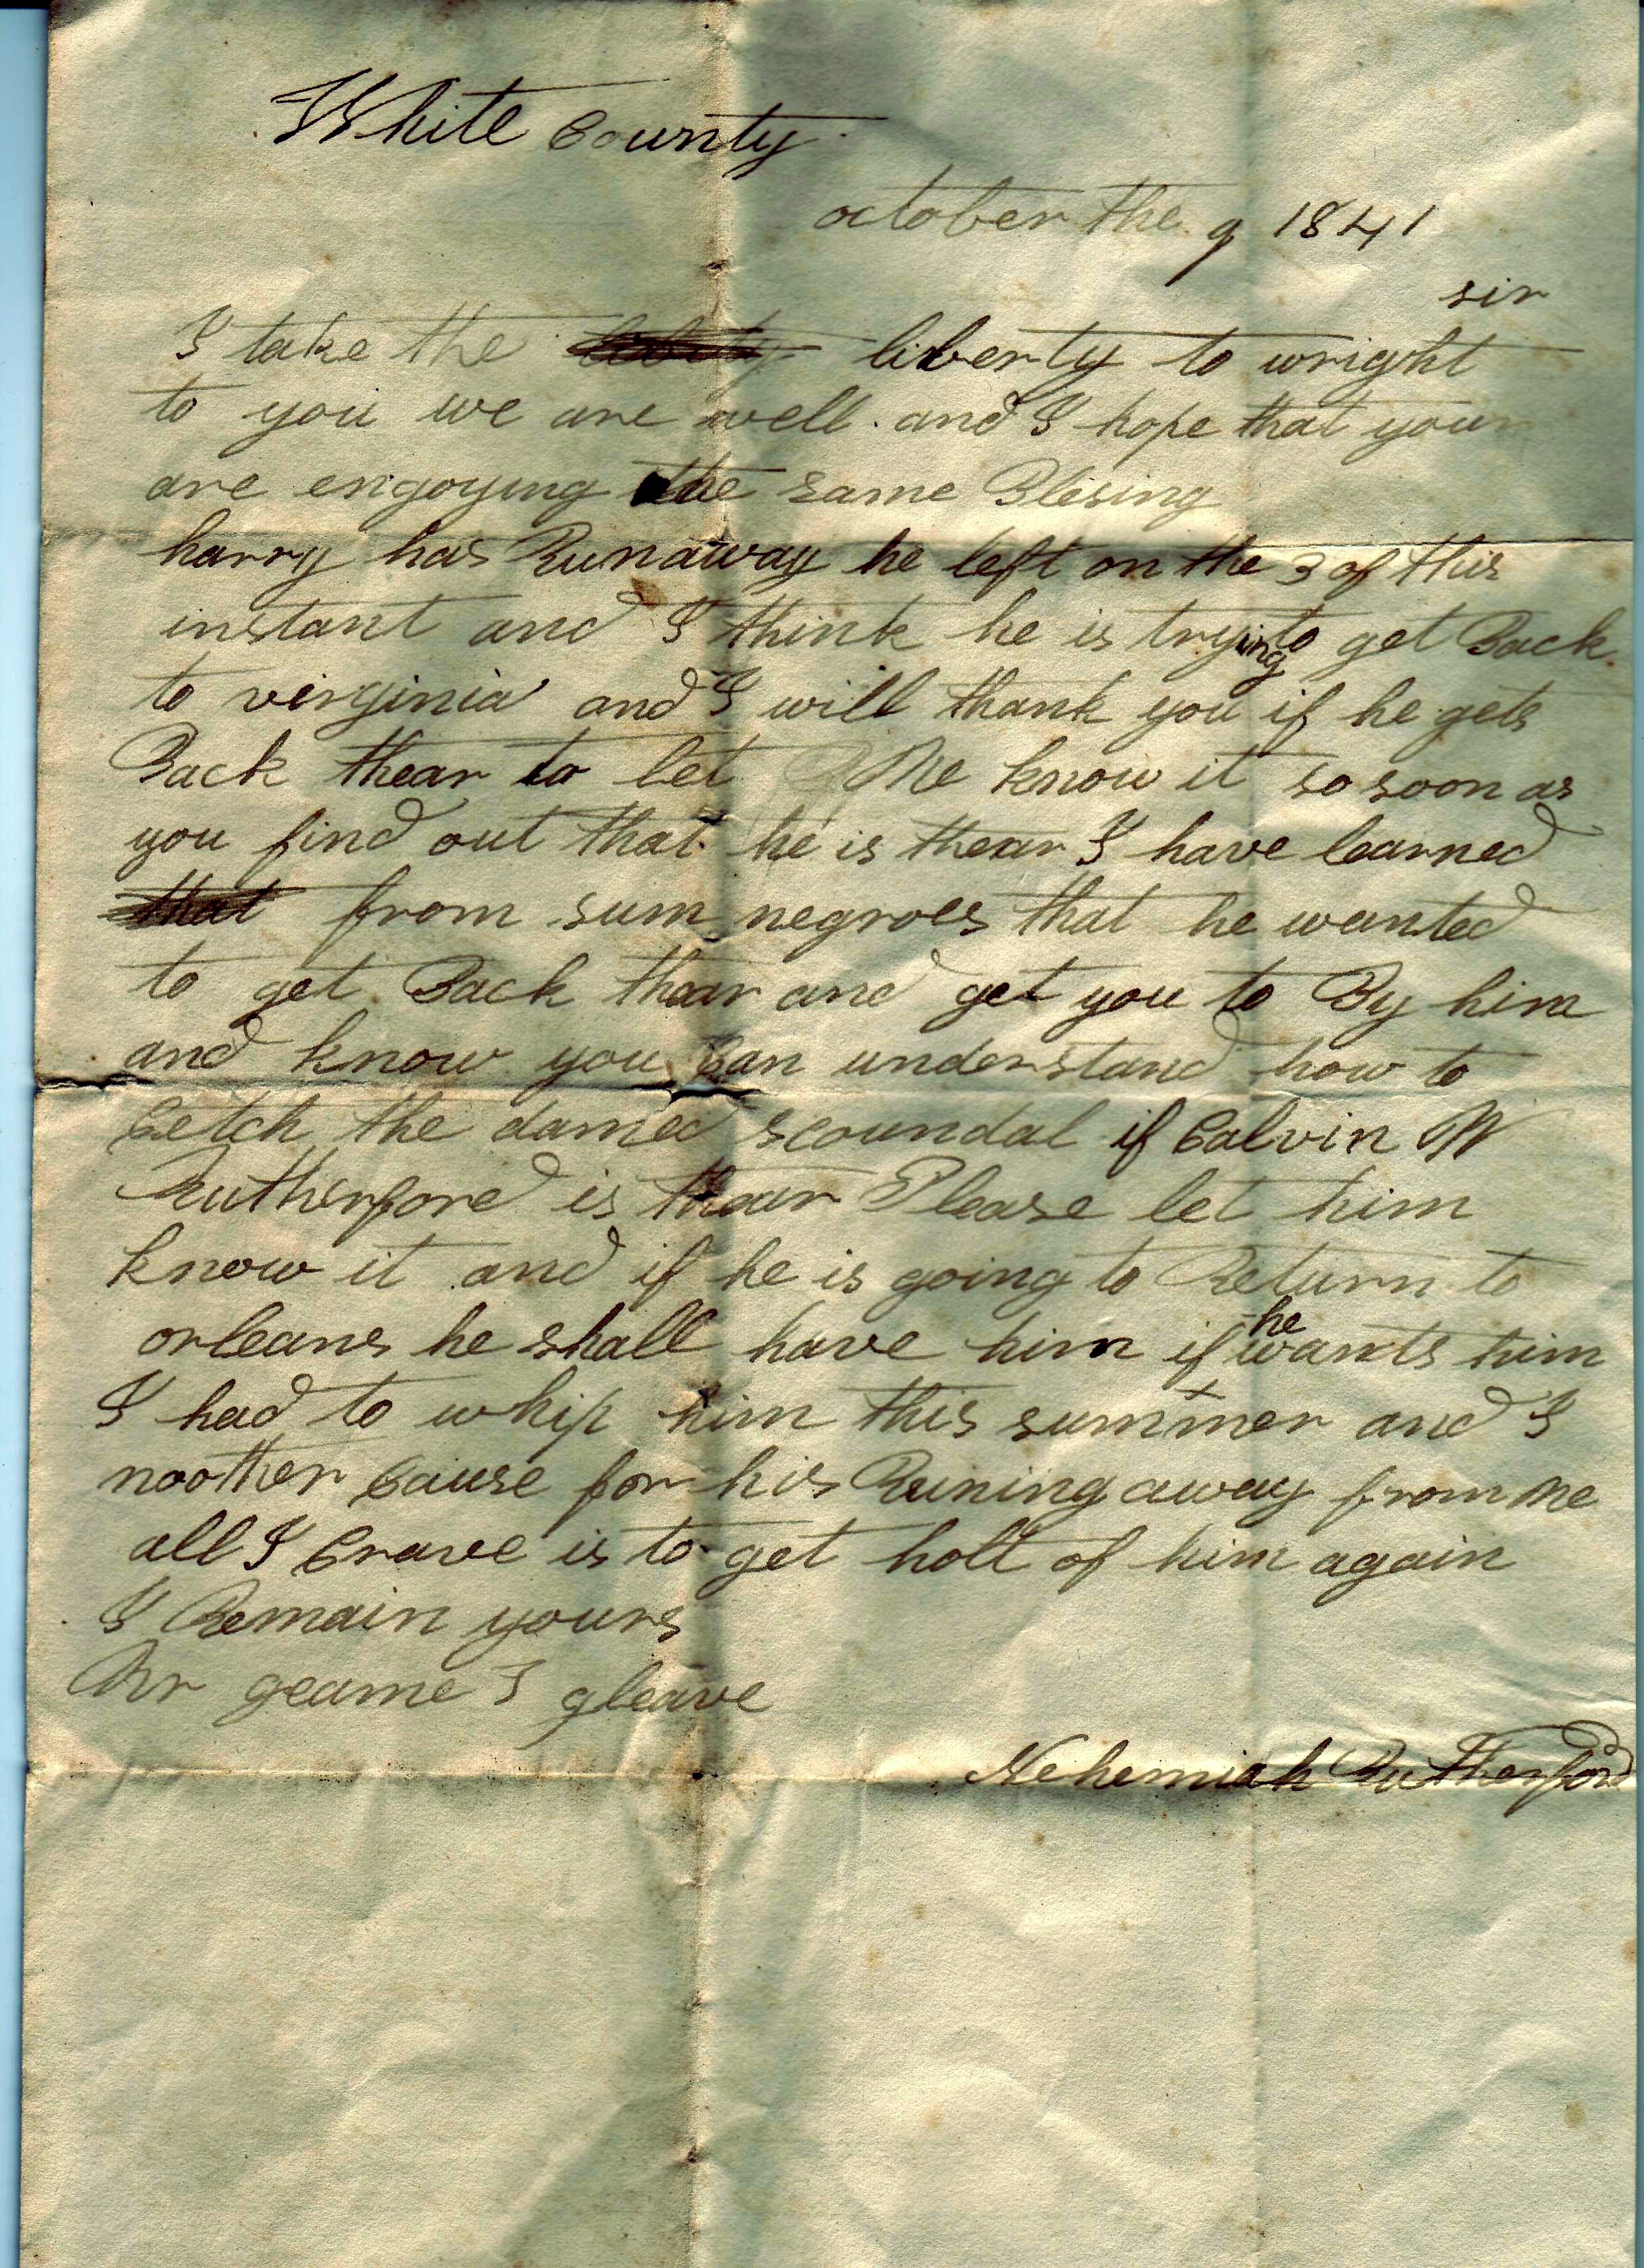 White County
october the 9 1841
sir
I take the liberty to wright
to you we are well. and I hope that your
are engoying the same Blesing
harry has Runaway he left on the 3 of this
instant and I think he is trying to get Back
to virginia and I will thank you if he gets
Back thear to let Me know it so soon as
you find out that he is thear I have learned
that from sum negroes that he wanted
to get Back thear and get you to By him
and know you Can understand how to
Cetch the damed scoundal if Calvin W
Rutherford is thear Please let him
know it and if he is going to Return to
orleans he shall have him if he wants him
I had to whip him this summer and I
noother Cause for his Runing away from me
all I Crave is to get holt of him again
I Remain yours
Mr I gleave
Nehemiah Rutherford